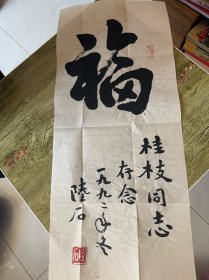 福
桂枝同志
存念
一九九二年冬
陸石